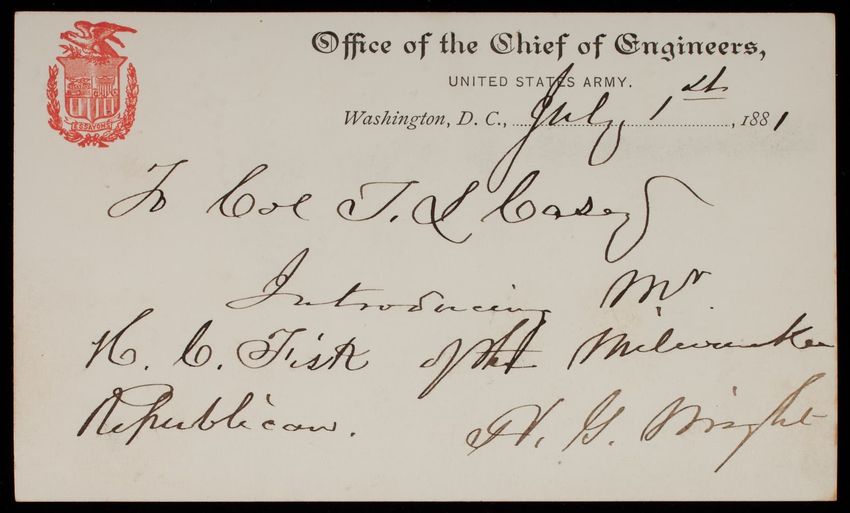 Office of the Chief of Engineers,
UNITED STATES ARMY.
Washington, D. C., July 1st, 1881
ESSAYONS
To Col T. L Casey
Introducing Mr
H. C. Fisk of the Milwaukee
Republican.
H. G. Wright